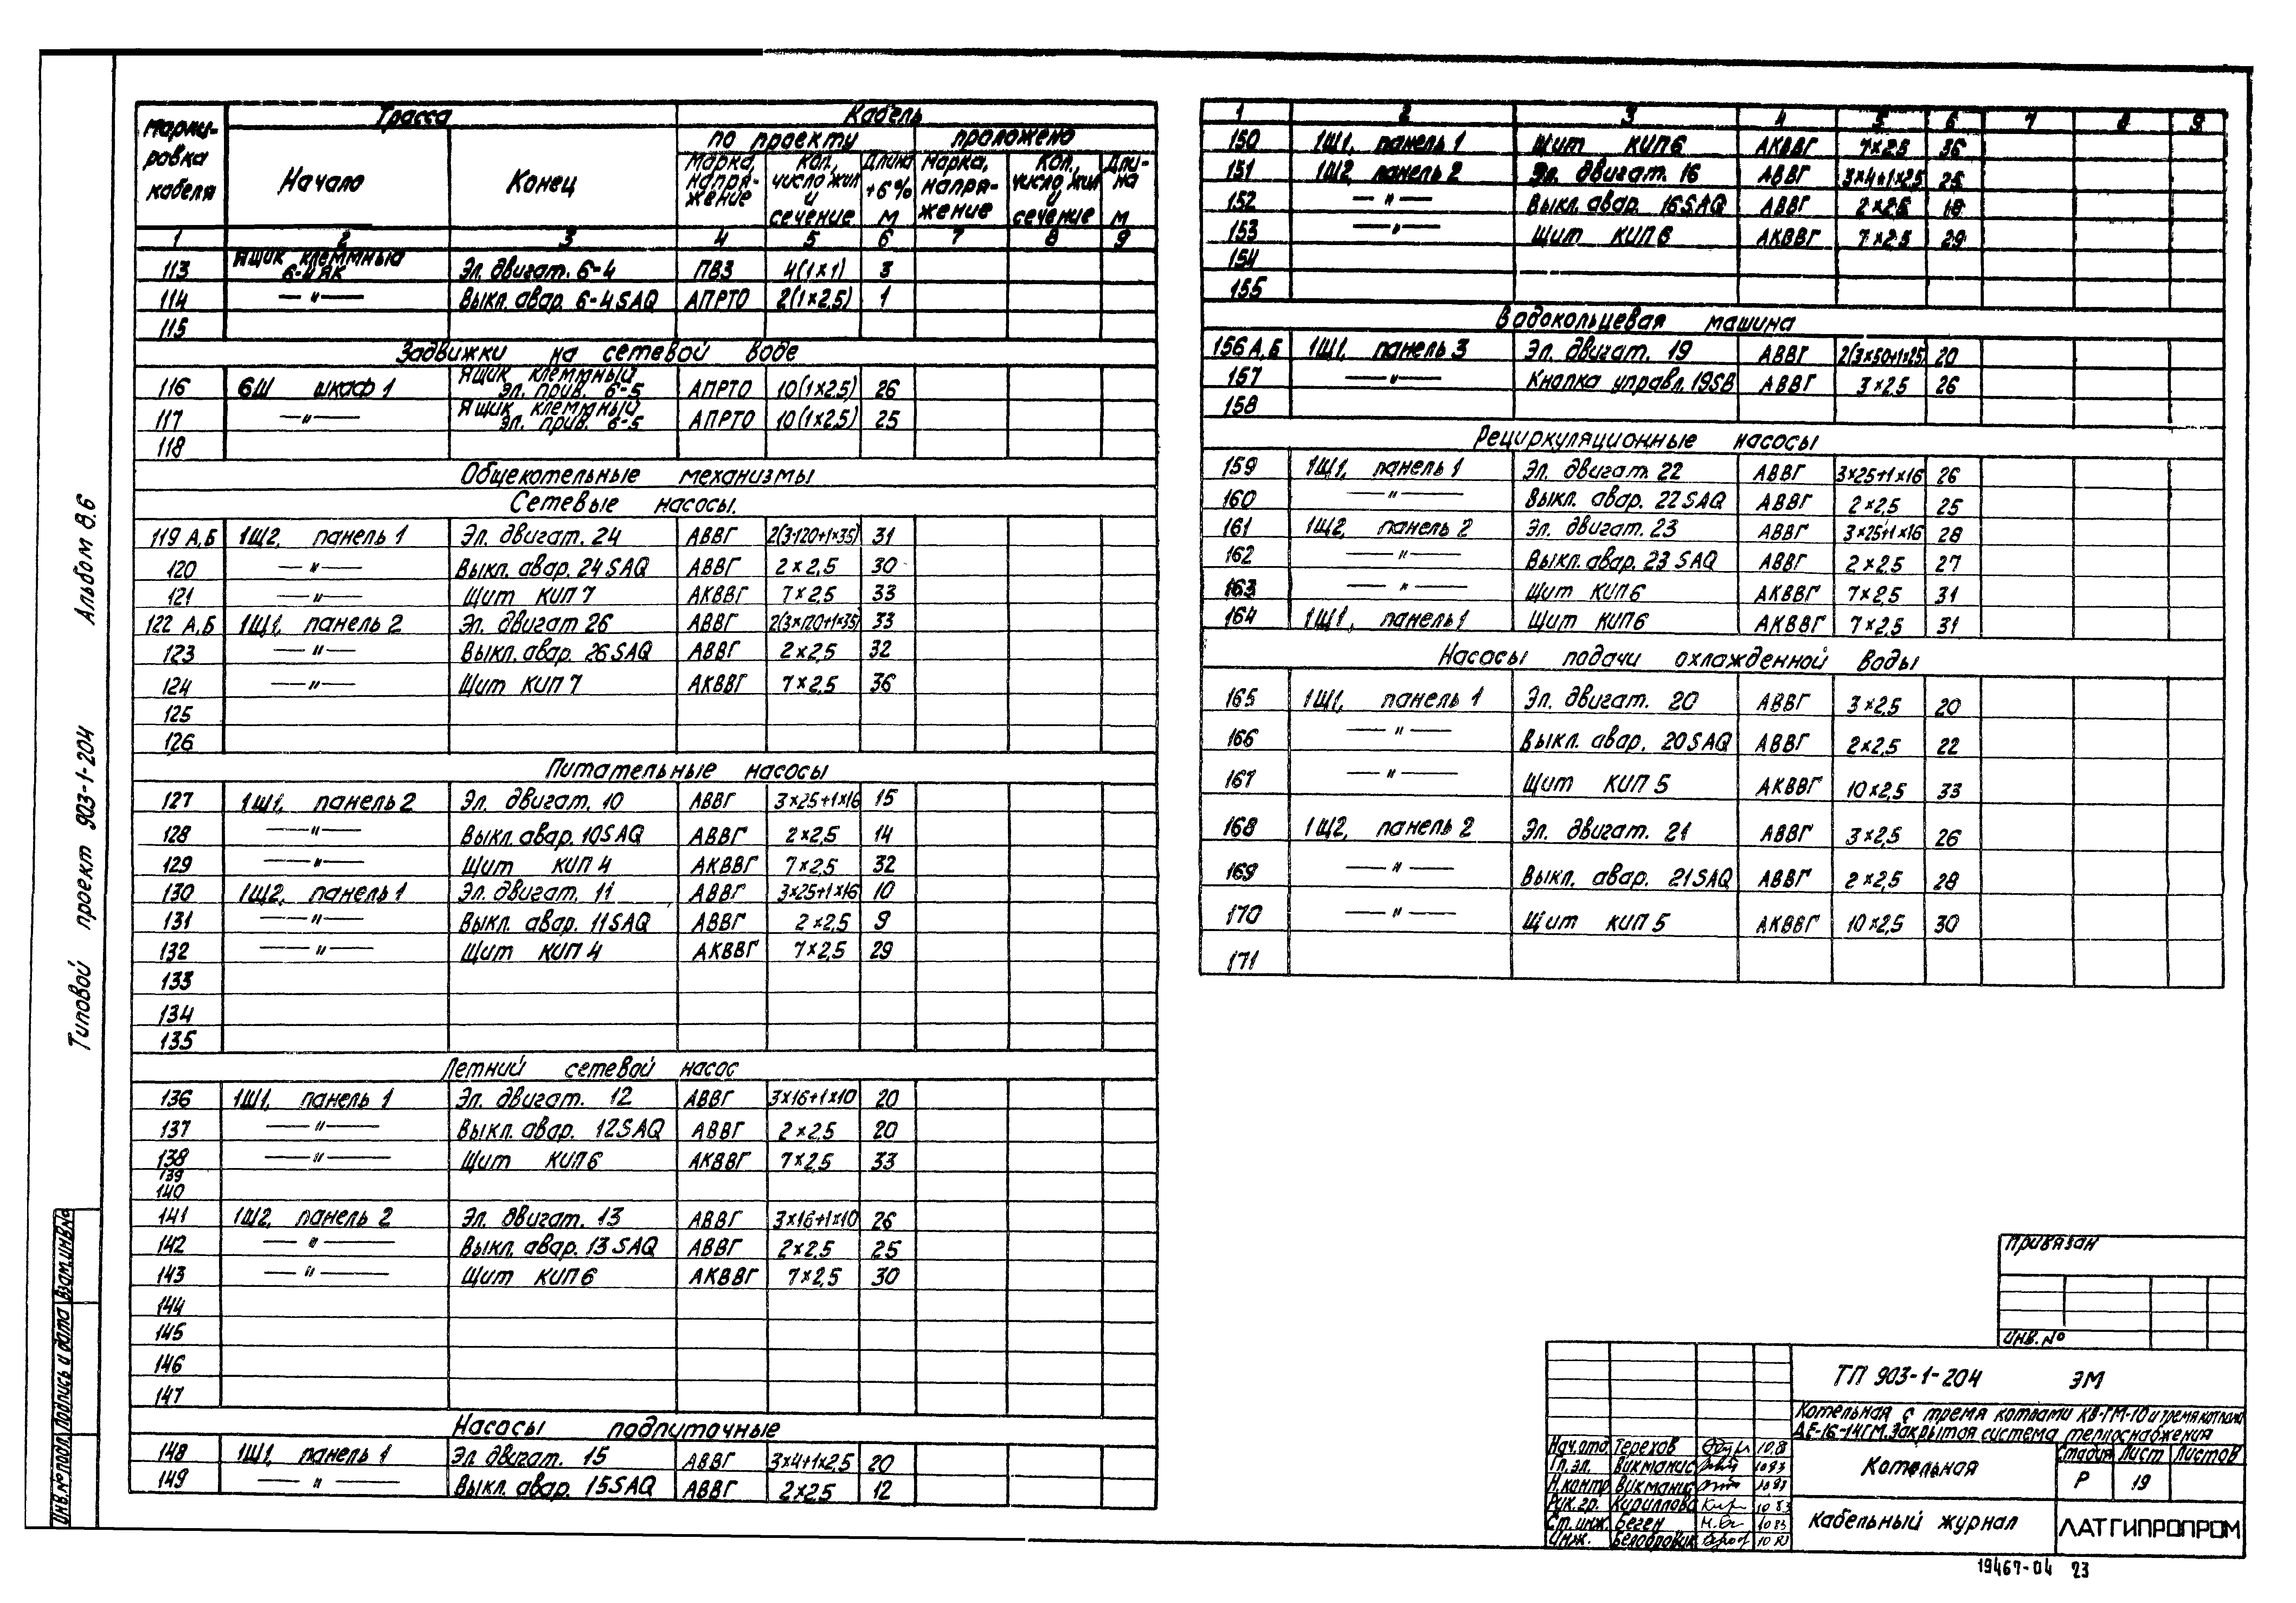 Альбом 8.6
Типовой проект 903-1-204
Взам.инв.№
Подпись и дата
Инв.№ подл.
Марки-ровка кабеля | Трасса | Кабель
по проекту | проложено
Начало | Конец | Марка, напря-жение | Кол., число жил и сечение | Длина +6% м | Марка, напря-жение | Кол., число жил и сечение | Дли-на м
1 2 3 4 5 6 7 8 9
113 Ящик клеммный 6-4 ЯК Эл. двигат. 6-4 ПВ3 4(1×1) 3
114 —"— Выкл. авар. 6-4SAQ АПРТО 2(1×2,5) 1
115
Задвижки на сетевой воде
116 6Ш шкаф 1 Ящик клеммный эл. прив. 6-5 АПРТО 10(1×2,5) 26
117 —"— Ящик клеммный эл. прив. 6-5 АПРТО 10(1×2,5) 25
118
Общекотельные механизмы
Сетевые насосы.
119 А,Б 1Щ2, панель 1 Эл. двигат. 24 АВВГ 2(3·120+1×35) 31
120 —"— Выкл. авар. 24SAQ АВВГ 2×2,5 30
121 —"— Щит КИП 7 АКВВГ 7×2,5 33
122 А,Б 1Щ1, панель 2 Эл. двигат 26 АВВГ 2(3×120+1×35) 33
123 —"— Выкл. авар. 26SAQ АВВГ 2×2,5 32
124 —"— Щит КИП 7 АКВВГ 7×2,5 36
125
126
Питательные насосы
127 1Щ1, панель 2 Эл. двигат. 10 АВВГ 3×25+1×16 15
128 —"— Выкл. авар. 10SAQ АВВГ 2×2,5 14
129 —"— Щит КИП 4 АКВВГ 7×2,5 32
130 1Щ2, панель 1 Эл. двигат. 11 АВВГ 3×25+1×16 10
131 —"— Выкл. авар. 11SAQ АВВГ 2×2,5 9
132 —"— Щит КИП 4 АКВВГ 7×2,5 29
133
134
135
Летний сетевой насос
136 1Щ1, панель 1 Эл. двигат. 12 АВВГ 3×16+1×10 20
137 —"— Выкл. авар. 12SAQ АВВГ 2×2,5 20
138 —"— Щит КИП6 АКВВГ 7×2,5 33
139
140
141 1Щ2, панель 2 Эл. двигат. 13 АВВГ 3×16+1×10 26
142 —"— Выкл. авар. 13SAQ АВВГ 2×2,5 25
143 —"— Щит КИП6 АКВВГ 7×2,5 30
144
145
146
147
Насосы подпиточные
148 1Щ1, панель 1 Эл двигат. 15 АВВГ 3×4+1×2,5 20
149 —"— Выкл. авар. 15SAQ АВВГ 2×2,5 12
1 2 3 4 5 6 7 8 9
150 1Щ1, панель 1 Щит КИП6 АКВВГ 7×2,5 36
151 1Щ2, панель 2 Эл. двигат. 16 АВВГ 3×4+1×2,5 25
152 —"— Выкл. авар. 16SAQ АВВГ 2×2,5 18
153 —"— Щит КИП6 АКВВГ 7×2,5 29
154
155
Водокольцевая машина
156 А,Б 1Щ1, панель 3 Эл. двигат. 19 АВВГ 2(3×50+1×25) 20
157 —"— Кнопка управл. 19SB АВВГ 3×2,5 26
158
Рециркуляционные насосы
159 1Щ1, панель 1 Эл. двигат. 22 АВВГ 3×25+1×16 26
160 —"— Выкл. авар. 22SAQ АВВГ 2×2,5 25
161 1Щ2, панель 2 Эл. двигат. 23 АВВГ 3×25+1×16 28
162 —"— Выкл. авар. 23SAQ АВВГ 2×2,5 27
163 —"— Щит КИП6 АКВВГ 7×2,5 31
164 1Щ1, панель 1 Щит КИП6 АКВВГ 7×2,5 31
Насосы подачи охлажденной воды
165 1Щ1, панель 1 Эл. двигат. 20 АВВГ 3×2,5 20
166 —"— Выкл. авар. 20SAQ АВВГ 2×2,5 22
167 —"— Щит КИП 5 АКВВГ 10×2,5 33
168 1Щ2, панель 2 Эл. двигат. 21 АВВГ 3×2,5 26
169 —"— Выкл. авар. 21SAQ АВВГ 2×2,5 28
170 —"— Щит КИП 5 АКВВГ 10×2,5 30
171
Привязан
Инв.№
ТП 903-1-204 ЭМ
Котельная с тремя котлами КВ-ГМ-10 и тремя котлами
ДЕ-16-14ГМ. Закрытая система теплоснабжения
Нач.отд Терехов
Гл.эл. Викманис 10 83
Н.контр Викманис
Рук.гр. Кириллова 10 83
Ст.инж. Беген 10 83
Инж.
Котельная
Стадия Лист Листов
Р 19
Кабельный журнал
ЛАТГИПРОПРОМ
19467-04 23